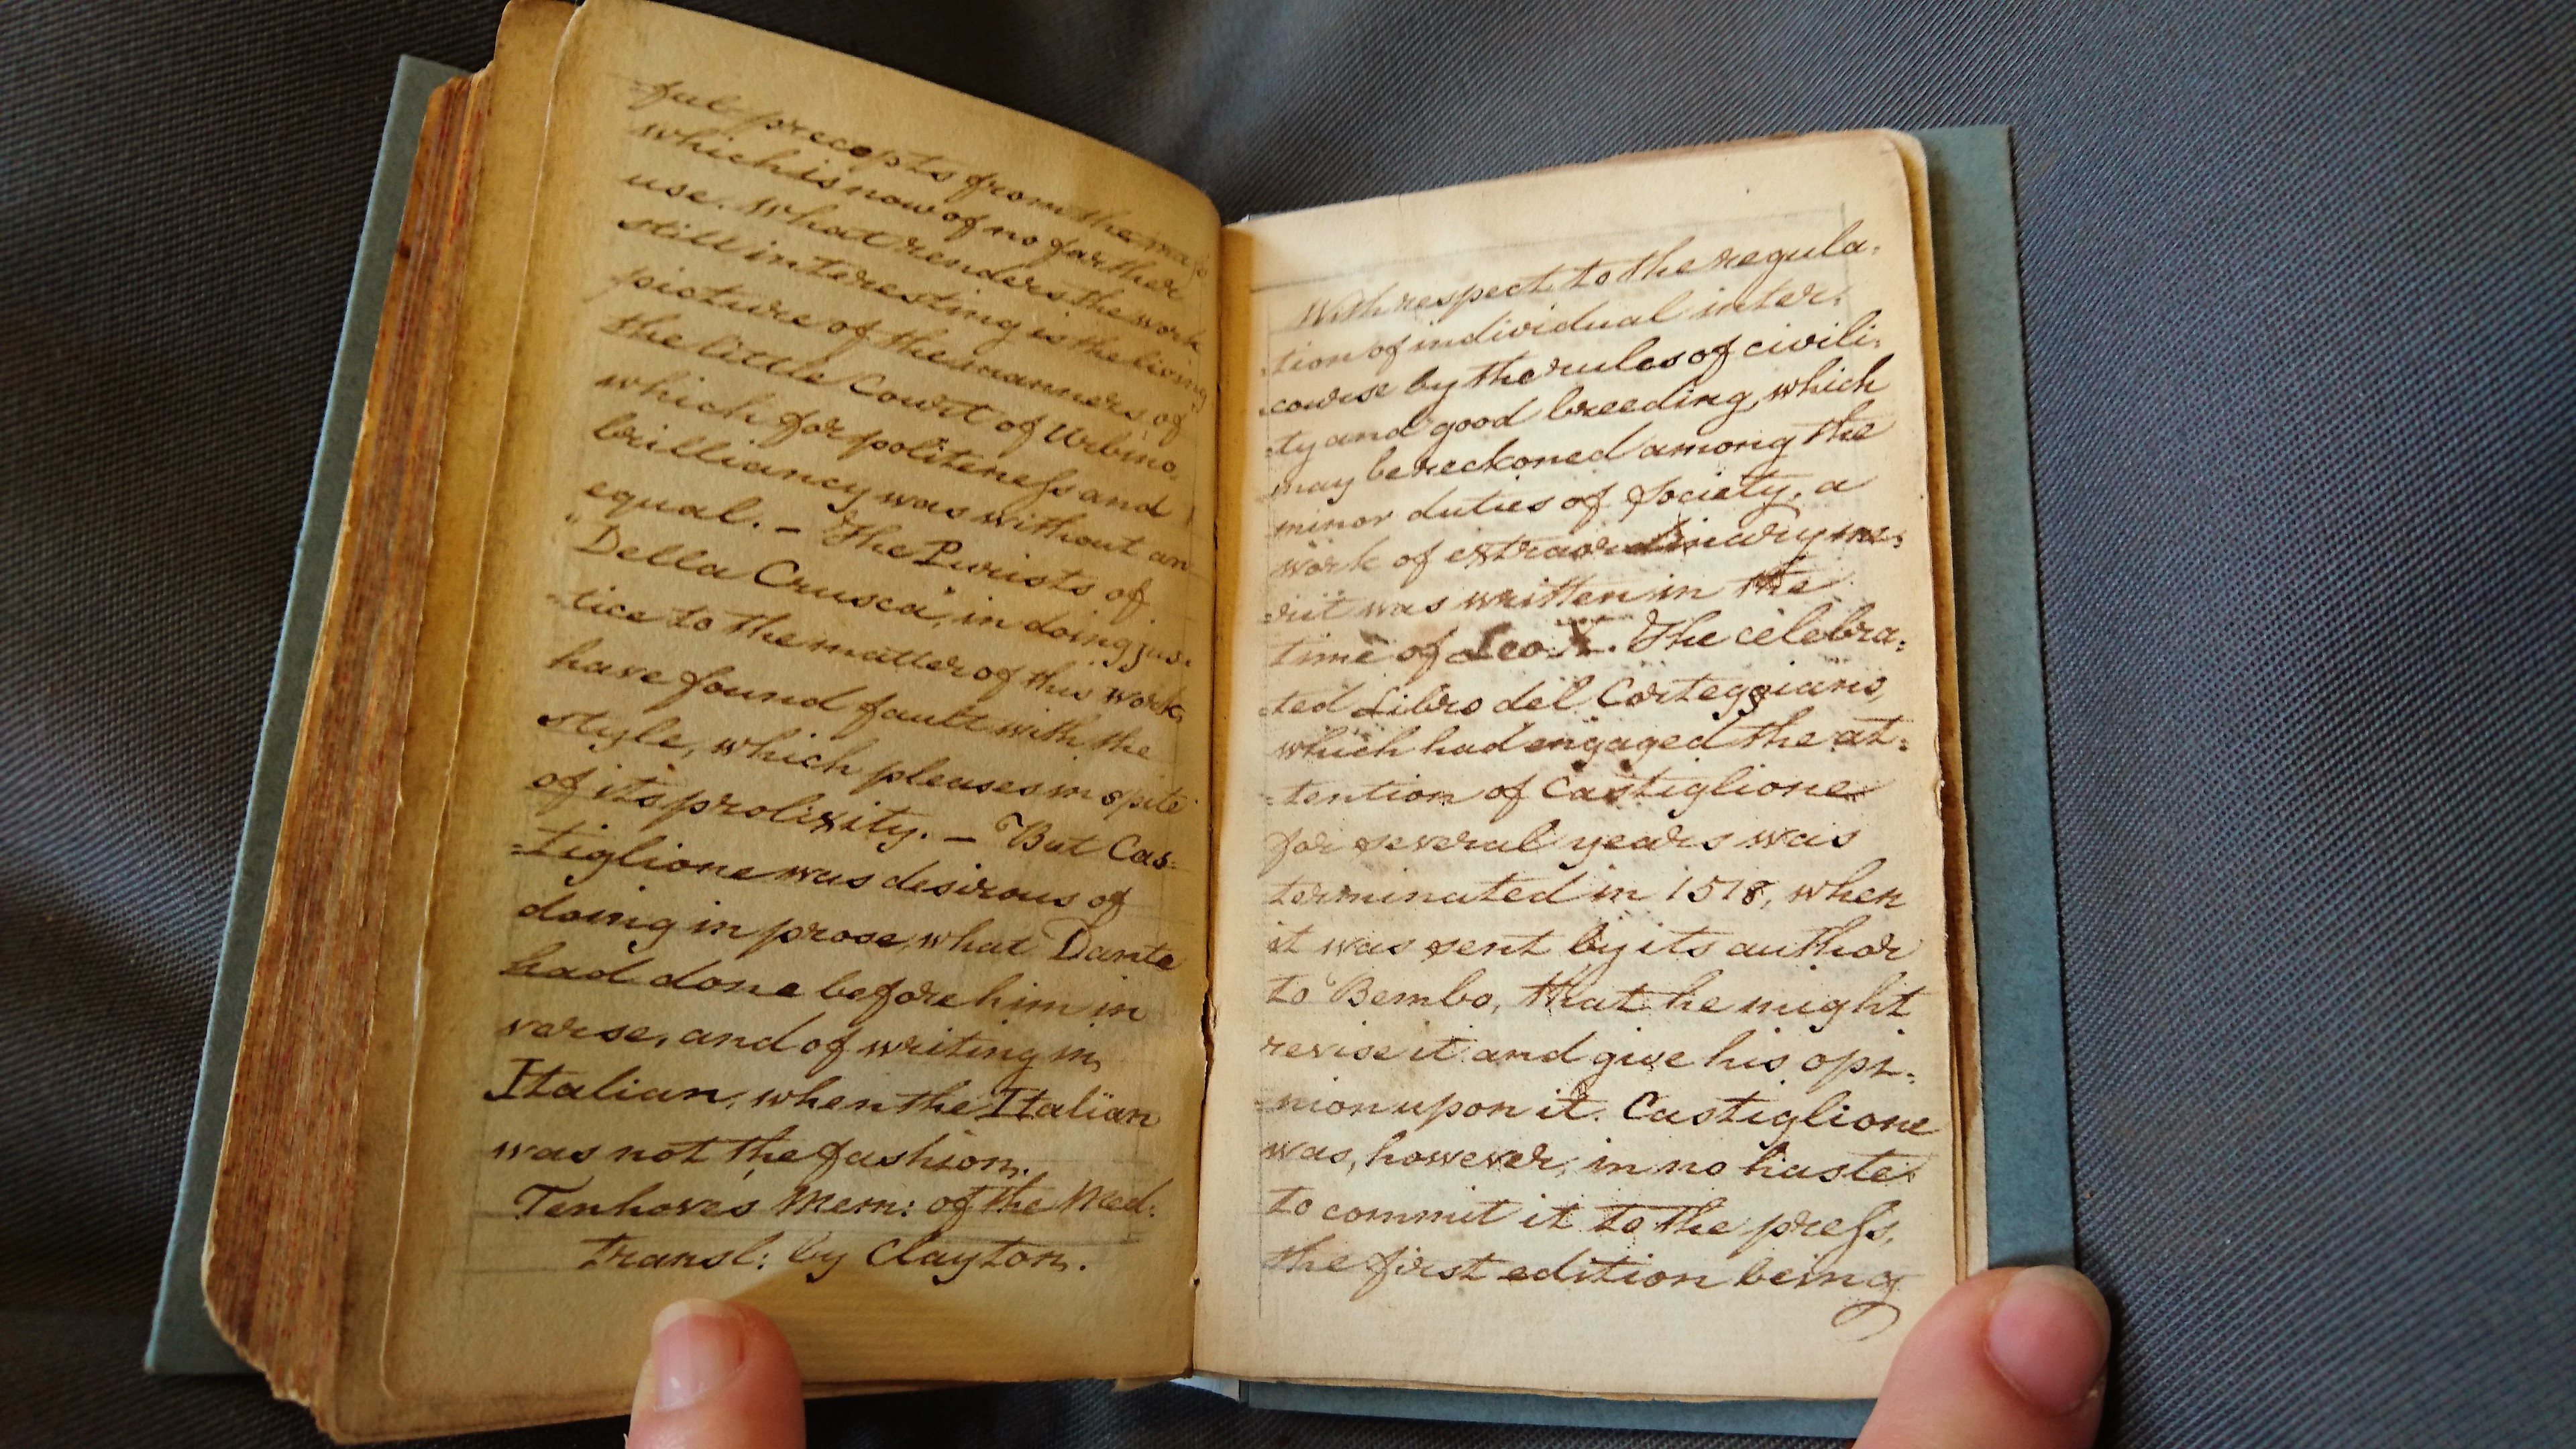 =ful precepts from the maſs
which is now of no farther
use. What renders the work
still interesting is the living
picture of the manners of
the little Court of Urbino,
which for politeneſs and
brilliancy was without an
equal. – The Purists of
"Della Crusca", in doing jus=
=tice to the matter of this work,
have found fault with the
style, which pleases in spite
of its prolixity. – But Cas=
=tiglione was desirous of
doing in prose, what Dante
had done before him in
verse, and of writing in
Italian, when the Italian
was not the fashion.
Tenhoves Mem: of the Med:
transl: by Clayton.
With respect to the regula=
=tion of individual inter=
=course by the rules of civili=
=ty and good breeding, which
may be reckoned among the
minor duties of Society, a
work of extraordinary me=
=rit was written in the
time of Leo X. The celebra=
=ted Libro del Corteggiano,
which had engaged the at=
=tention of Castiglione
for several years was
terminated in 1518, when
it was sent by its author
to Bembo, that he might
revise it and give his opi=
=nion upon it. Castiglione
was, however, in no haste
to commit it to the preſs,
the first edition being